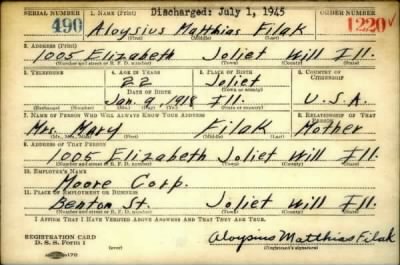 Discharged: July 1, 1945
SERIAL NUMBER 1. NAME (Print) ORDER NUMBER
490 Aloysius Matthias Filak 1220
(First) (Middle) (Last)
2. ADDRESS (Print)
1005 Elizabeth Joliet Will Ill.
(Number and street or R. F. D. number) (Town) (County) (State)
3. TELEPHONE 4. AGE IN YEARS 5. PLACE OF BIRTH 6. COUNTRY OF CITIZENSHIP
22 Joliet
DATE OF BIRTH (Town or county)
Jan. 9, 1918 Ill. U.S.A.
(Exchange) (Number) (Mo.) (Day) (Yr.) (State or country)
7. NAME OF PERSON WHO WILL ALWAYS KNOW YOUR ADDRESS 8. RELATIONSHIP OF THAT PERSON
Mrs. Mary Filak Mother
(Mr., Mrs., Miss) (First) (Middle) (Last)
9. ADDRESS OF THAT PERSON
1005 Elizabeth Joliet Will Ill.
(Number and street or R. F. D. number) (Town) (County) (State)
10. EMPLOYER'S NAME
Moore Corp.
11. PLACE OF EMPLOYMENT OR BUSINESS
Benton St. Joliet Will Ill.
(Number and street or R. F. D. number) (Town) (County) (State)
I AFFIRM THAT I HAVE VERIFIED ABOVE ANSWERS AND THAT THEY ARE TRUE.
REGISTRATION CARD
D. S. S. Form 1 (over) Aloysius Matthias Filak
(Registrant's signature)